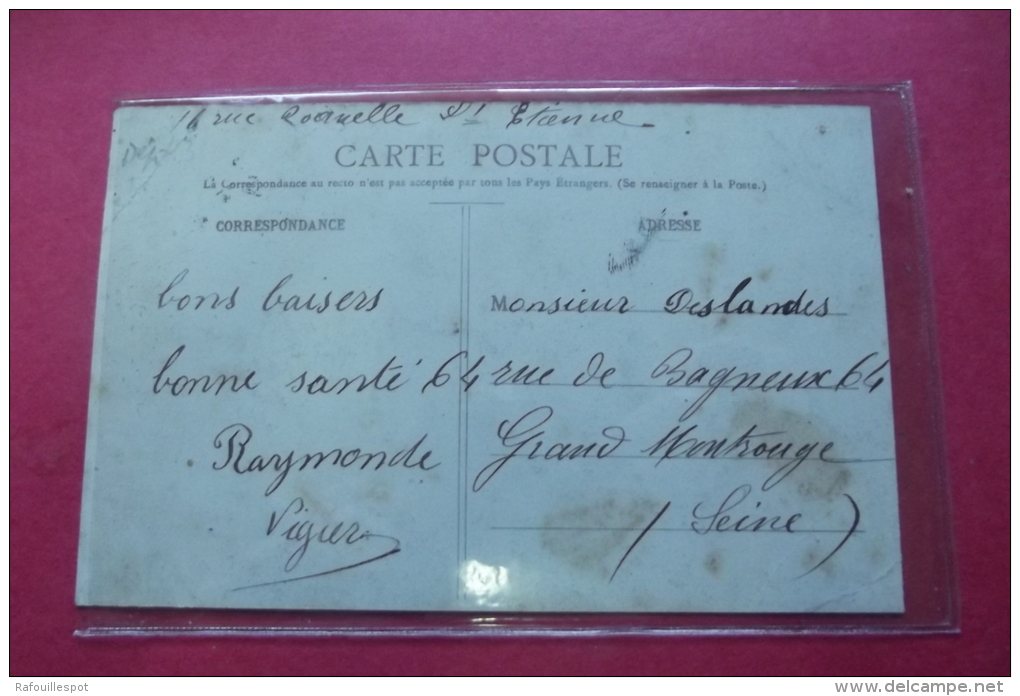 rue St Etienne
CARTE POSTALE
La Correspondance au recto n'est pas acceptée par tous les Pays Étrangers. (Se renseigner à la Poste.)
CORRESPONDANCE
bons baisers
bonne santé
Raymonde
Vigier
ADRESSE
Monsieur Deslandes
64 rue de Bagneux 64
Grand Montrouge
(Seine)
Rafouillespot
www.delcampe.net